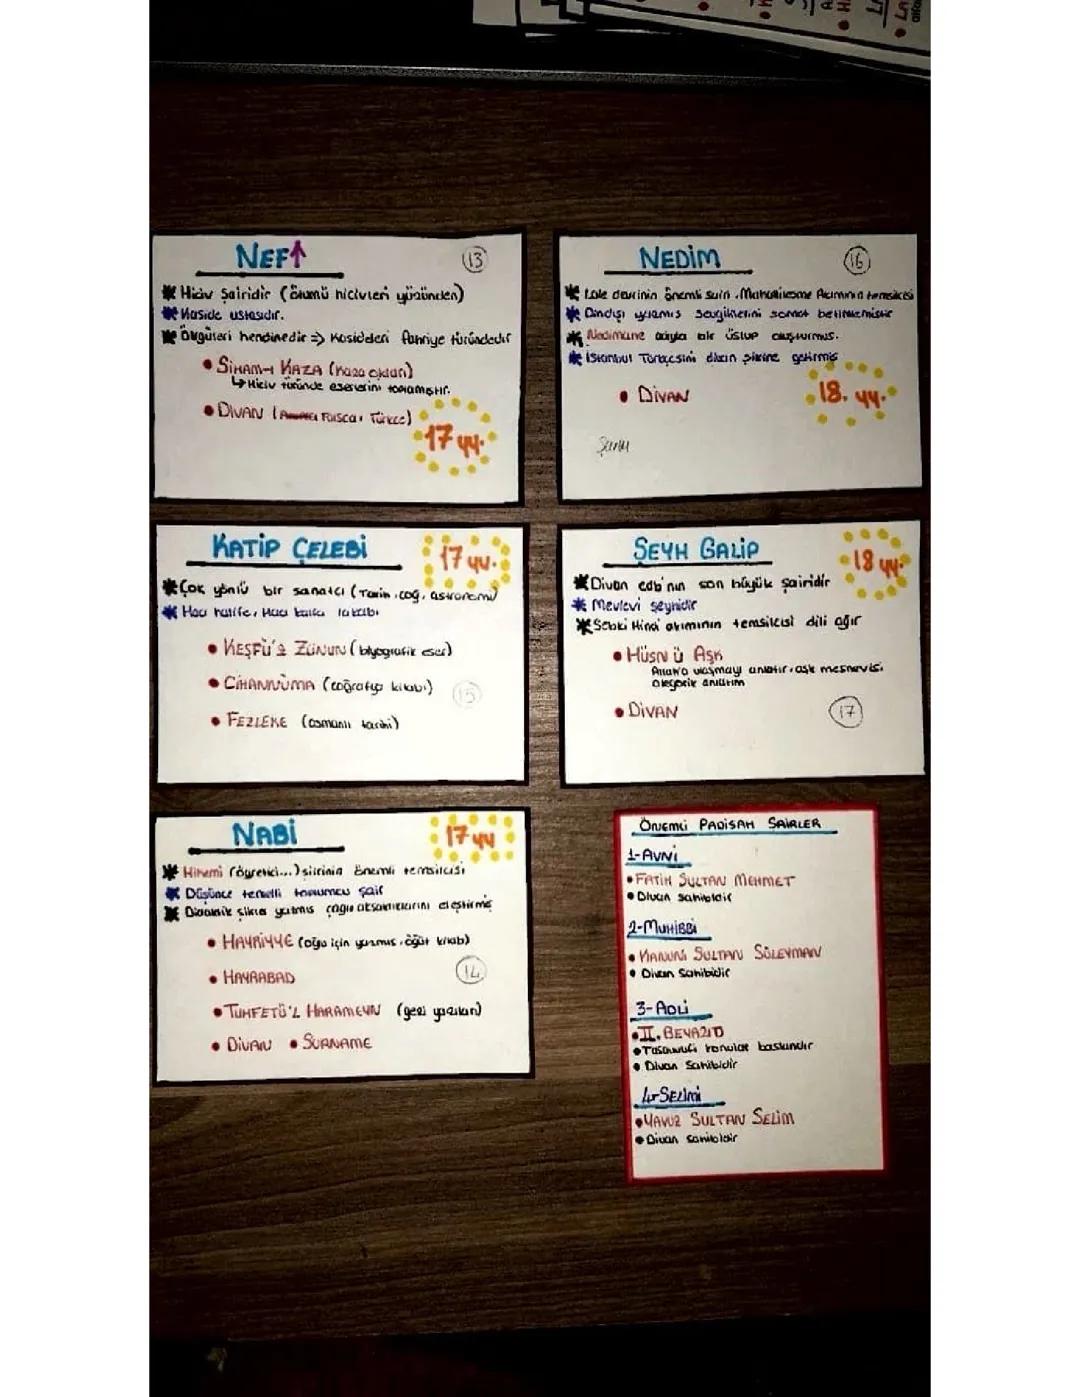 NEFİ
13
Hiciv Şairidir (ölümü hicivleri yüzünden)
Kaside ustasıdır.
övgüleri kendinedir => Kasideleri fahriye türündedir
SİHAM-I KAZA (Kaza okları)
↳ Hiciv türünde eserlerini toplamıştır.
DİVAN ( Farsça, Türkçe)
17 yy.
NEDİM
16
Lale devrinin önemli şairi. Mahallileşme Akımının temsilcisi
Dindışı yazmış sevgililerini somut betimlemiştir
Nedimane adıyla bir üslup oluşturmuş.
İstanbul Türkçesini divan şiirine getirmiş
DİVAN
18. yy.
Şarkı
KATİP ÇELEBİ
17 yy.
Çok yönlü bir sanatçı (Tarih, coğ, astronomi)
Hacı halife, Hacı kalfa lakabı
KEŞFÜ'Z ZÜNUN (biyografik eser)
CİHANNÜMA (coğrafya kitabı)
15
FEZLEKE (osmanlı tarihi)
ŞEYH GALİP
18 yy.
Divan edb'nın son büyük şairidir
Mevlevi şeyhidir
Sebki Hindi akımının temsilcisi dili ağır
HÜSN Ü AŞK
Allah'a ulaşmayı anlatır. aşk mesnevisi
alegorik anlatım
DİVAN
17
NABİ
17 yy
Hikemi (öğretici...) şiirinin önemli temsilcisi
Düşünce temelli toplumcu şair
Didaktik şiirler yazmış çağın aksaklıklarını eleştirmiş
HAYRİYYE (oğlu için yazmış, öğüt kitabı)
14
HAYRABAD
TUHFETÜ'L HARAMEYN (gezi yazıları)
DİVAN • SURNAME
ÖNEMLİ PADİŞAH ŞAİRLER
1-AVNİ
FATİH SULTAN MEHMET
Divan sahibidir
2-MUHİBBİ
KANUNİ SULTAN SÜLEYMAN
Divan Sahibidir
3-ADLİ
II. BEYAZID
Tasavvufi konular baskındır
Divan Sahibidir
4-SELİMİ
YAVUZ SULTAN SELİM
Divan sahibidir